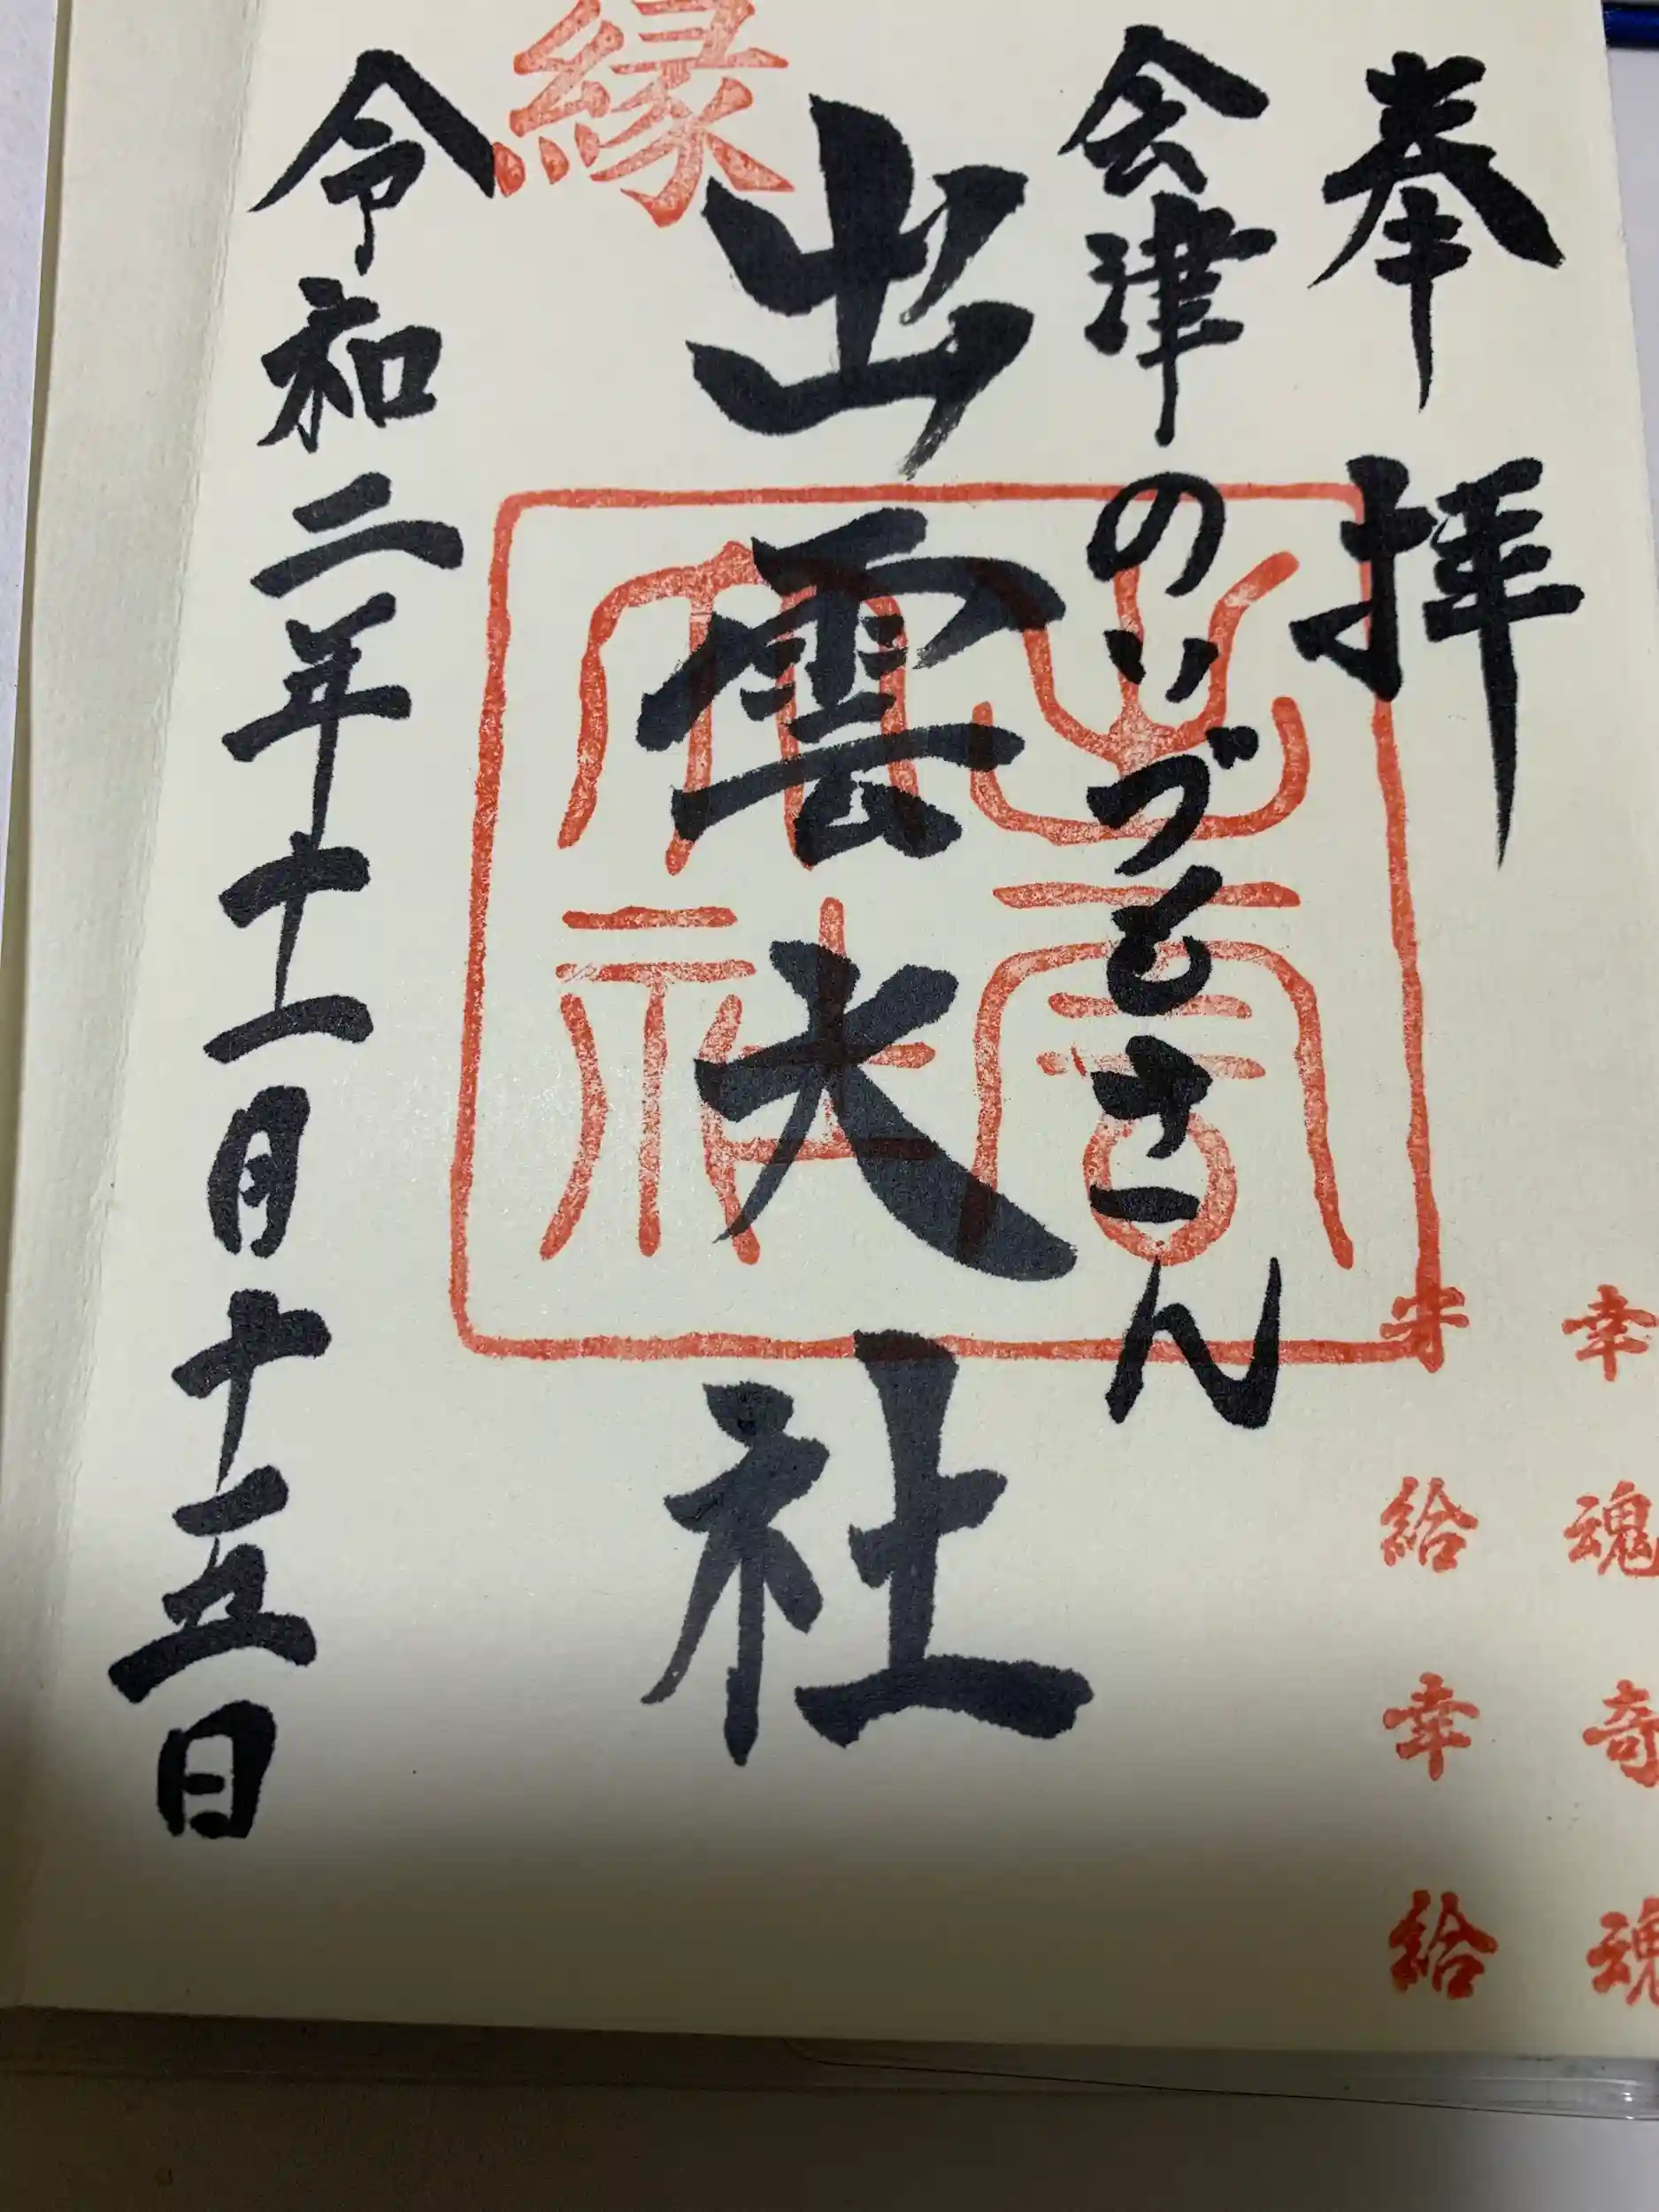 奉拝
幸魂奇魂
守給幸給
会津のいづもさん
出雲大社
出雲大社
縁
令和二年十一月十五日